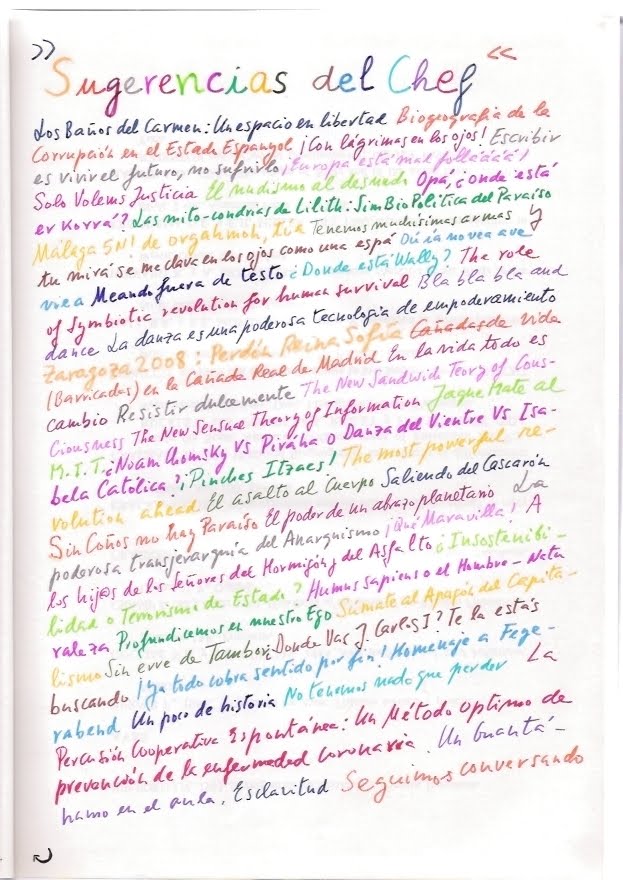 >> Sugerencias del Chef <<
Los Baños del Carmen: Un espacio en libertad Biogeografía de la
Corrupción en el Estado Espanyol ¡Con lágrimas en los ojos! Escribir
es vivir el futuro, no sufrirlo ¡Europa está mal folláááá!
Solo Volems Justicia El nudismo al desnudo Opá, ¿onde está
er Korra'? Las mito-condrias de Lilith: SimBioPolítica del Paraíso
Málaga 5N! de orgahmoh, tía Tenemos muchísimas armas y
tu mirá se me clava en los ojos como una espá Dú ia no vea ave
vie a Meando fuera de testo ¿Donde está Wally? The role
of Symbiotic revolution for human survival Bla bla bla and
dance La danza es una poderosa tecnología de empoderamiento
Zaragoza 2008: Perdón Reina Sofía Cañadas de vida
(Barricadas) en la Cañada Real de Madrid En la vida todo es
cambio Resistir dulcemente The New Sandwich Teory of Cous-
Ciousness The New Sensual Theory of Information Jaque Mate al
M.I.T: ¿Noam Chomsky Vs Piraha o Danza del Vientre Vs Isa-
bela Católica? ¡Pinches Itzaes! The most powerful re-
volution ahead El asalto al Cuerpo Saliendo del Cascarón
Sin Coños no hay Paraíso El poder de un abrazo planetario La
poderosa transjerarquía del Anarquismo ¡Qué Maravilla! A
los hij@s de los Señores del Hormigón y del Asfalto ¿Insostenibi-
lidad o Terrorismo de Estado? Humus sapiens o el Hombre-Natu
raleza Profundicemos en nuestro Ego Súmate al Apagón del Capita-
lismo Sin erre de Tambor ¿Donde Vas J. Carlos I? Te la estás
buscando ¡Ya todo cobra sentido por fin! Homenaje a Feye-
rabend Un poco de historia No tenemos nada que perder La
Percusión Cooperativa Espontánea: Un Método Optimo de
prevención de la enfermedad coronaria. Un Guantá-
namo en el aula. Esclavitud Seguimos conversando